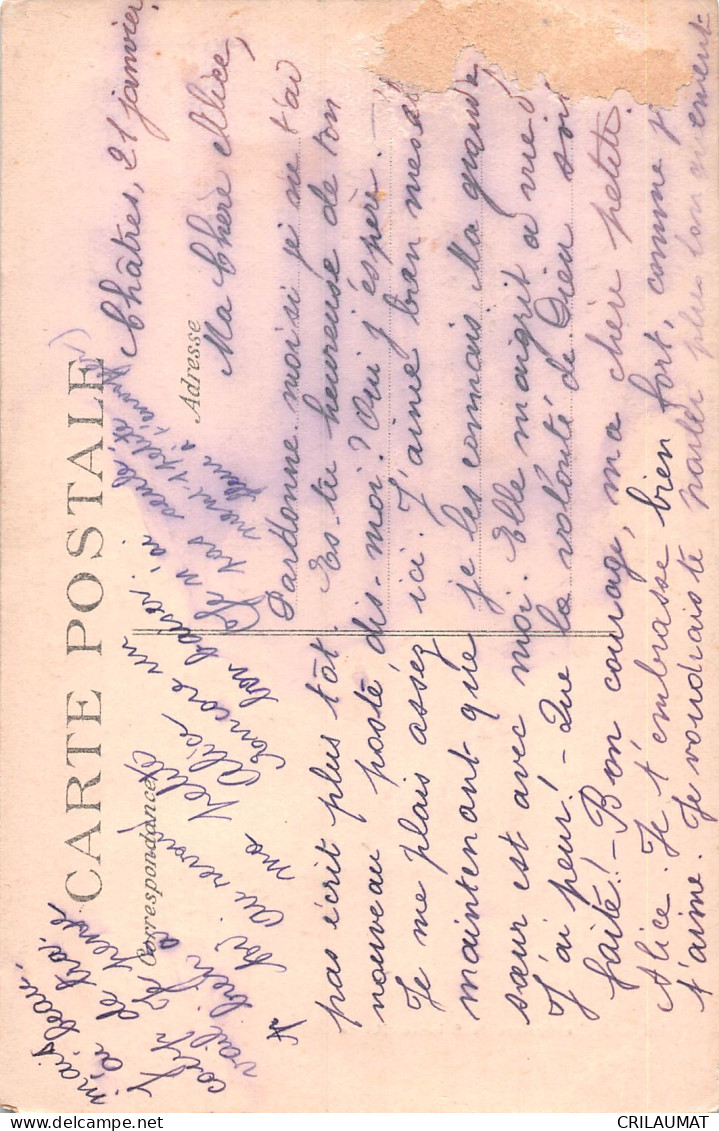 CARTE POSTALE
Correspondance
Adresse
Châtres, 21 janvier.
Ma Chère Alice,
Pardonne-moi si je ne t'ai
pas écrit plus tôt. Es-tu heureuse de ton
nouveau poste, dis-moi? Oui j'espère. -
Je me plais assez ici. J'aime bien mes
maintenant que je les connais. Ma grande
sœur est avec moi. Elle maigrit à vue
J'ai peur! - Que la volonté de Dieu soit
faite! - Bon courage, ma chère petite
Alice. Je t'embrasse bien fort, comme je
t'aime. Je voudrais te parler plus longuement
mais beau-
J'ai
coup de tra-
vail. Je pense
bien à
toi. Au revoir,
ma petite Alice,
encore un
bon baiser.
Je n'ai
pas oublié
merci petite
fleur à
CRILAUMAT